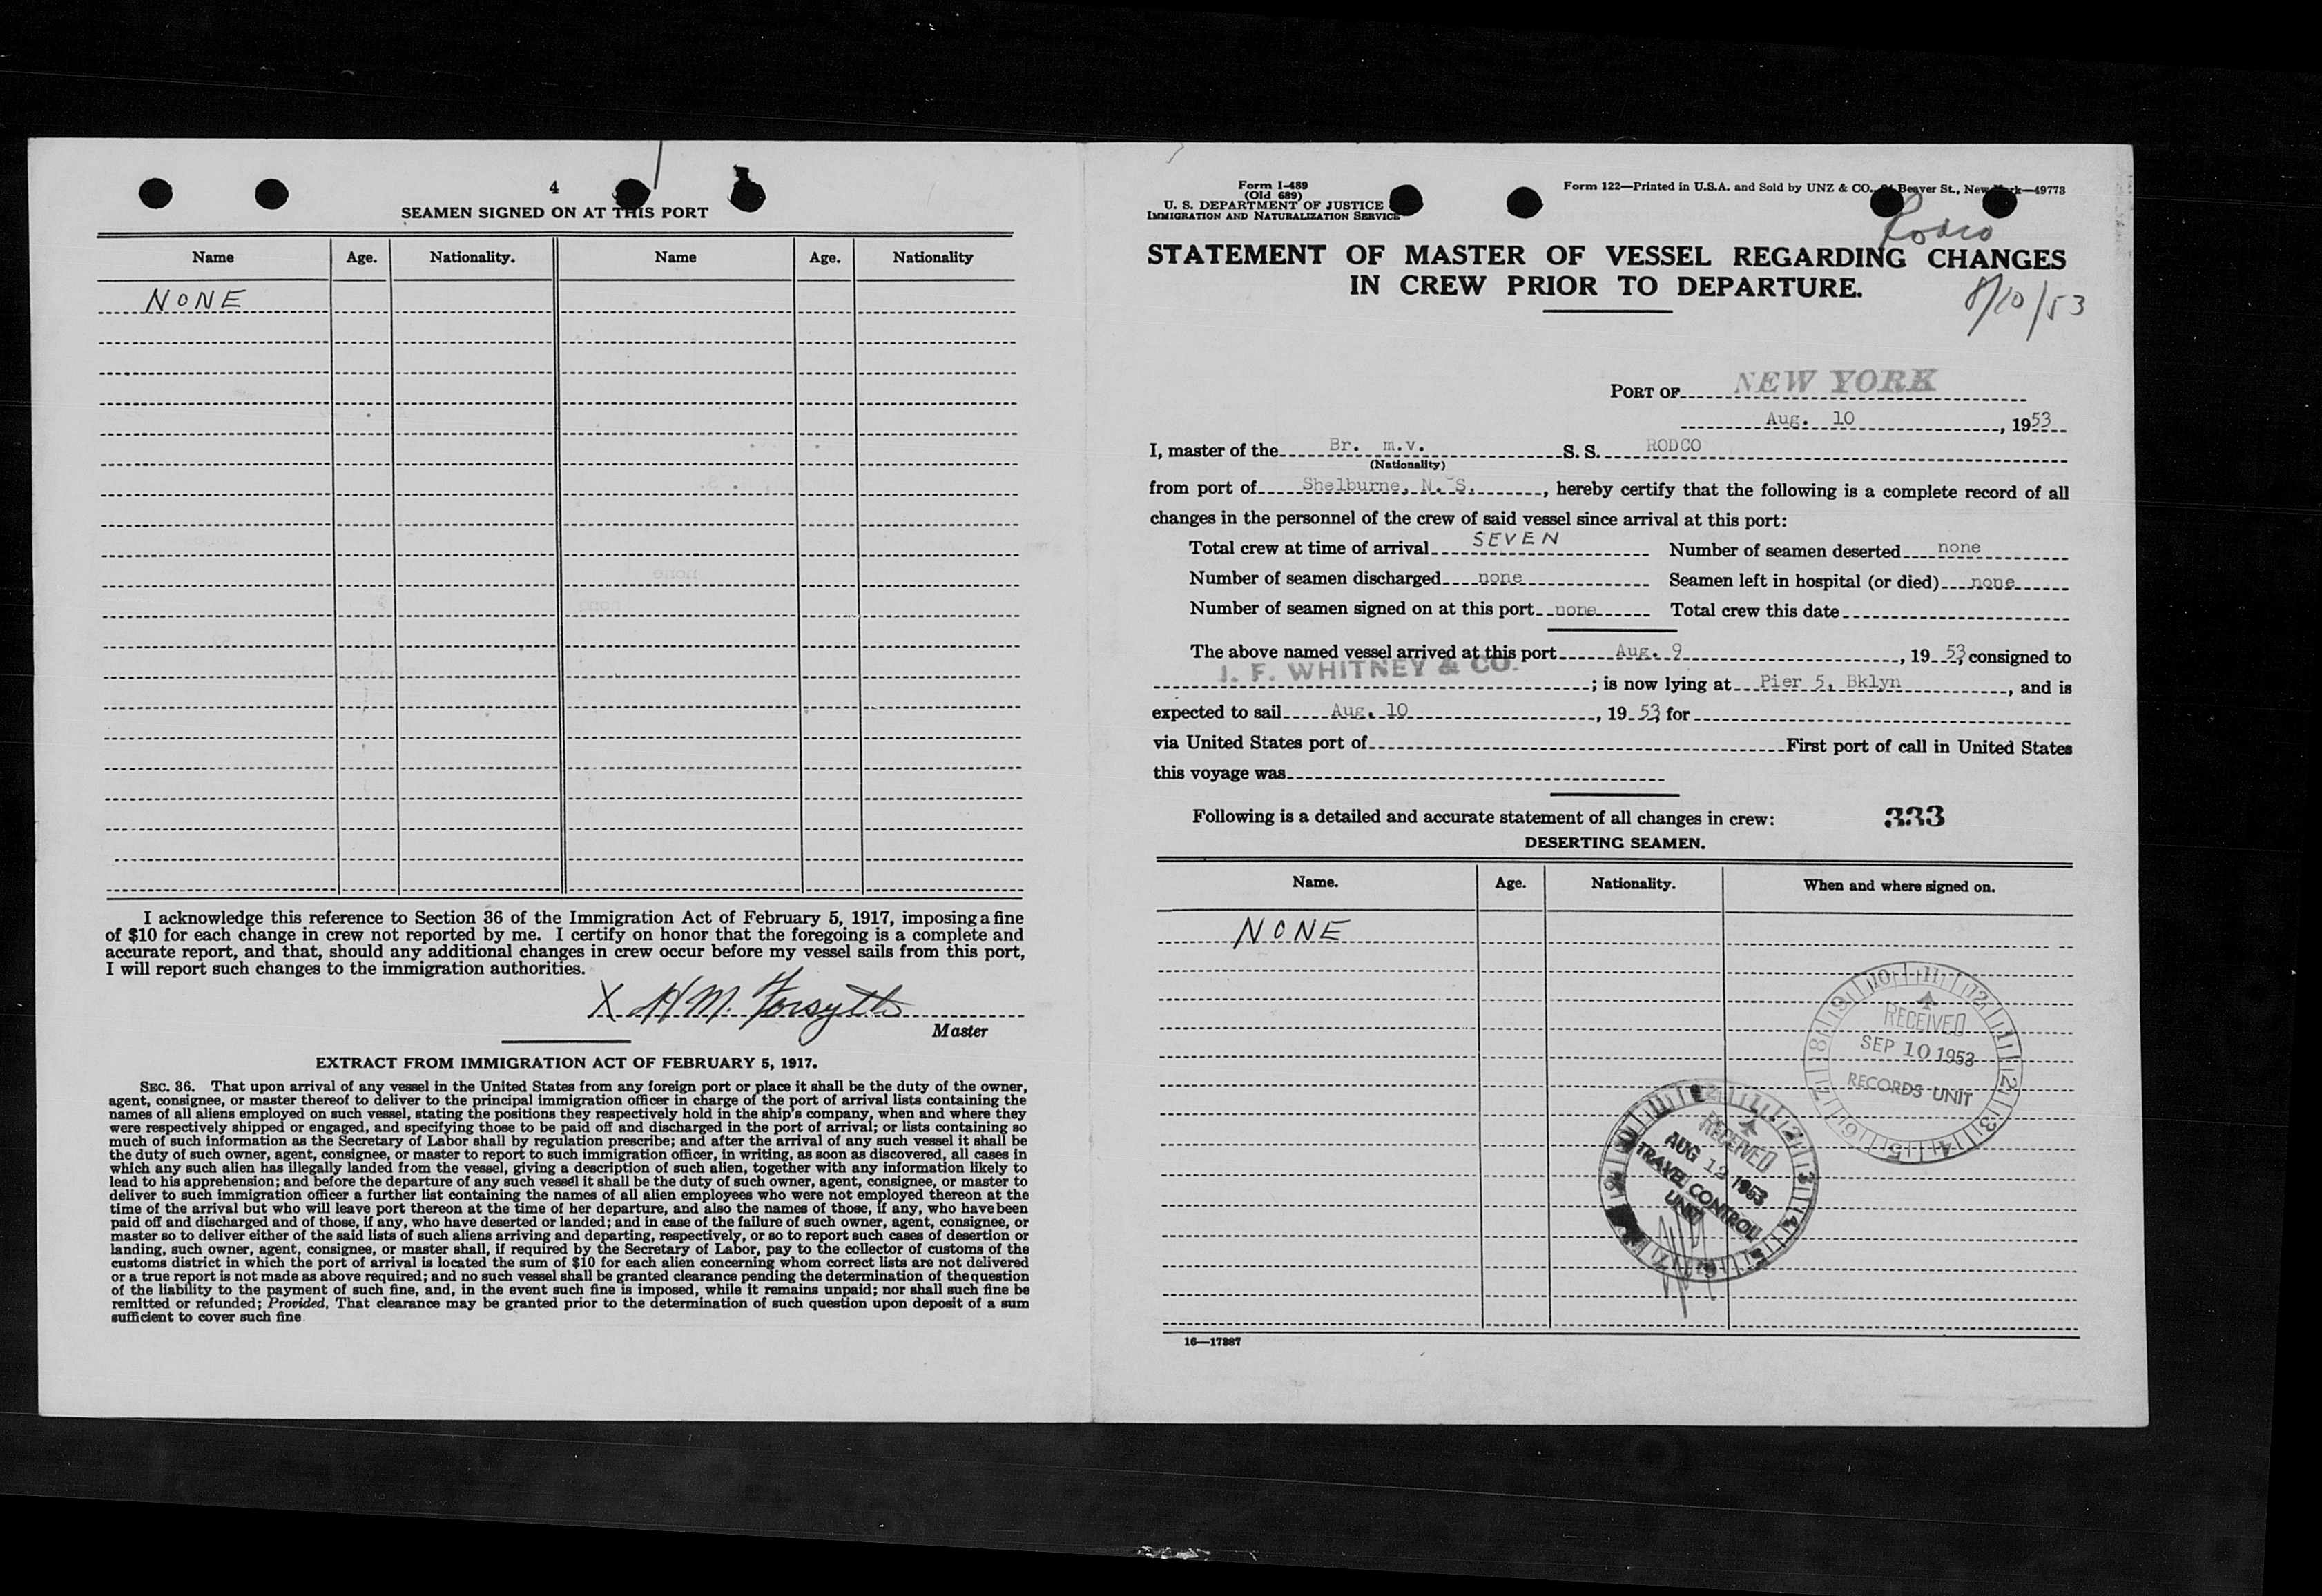 4
SEAMEN SIGNED ON AT THIS PORT
Name Age. Nationality. Name Age. Nationality
NONE
I acknowledge this reference to Section 36 of the Immigration Act of February 5, 1917, imposing a fine
of $10 for each change in crew not reported by me. I certify on honor that the foregoing is a complete and
accurate report, and that, should any additional changes in crew occur before my vessel sails from this port,
I will report such changes to the immigration authorities.
X H M. Forsyth
Master
EXTRACT FROM IMMIGRATION ACT OF FEBRUARY 5, 1917.
SEC. 36. That upon arrival of any vessel in the United States from any foreign port or place it shall be the duty of the owner,
agent, consignee, or master thereof to deliver to the principal immigration officer in charge of the port of arrival lists containing the
names of all aliens employed on such vessel, stating the positions they respectively hold in the ship's company, when and where they
were respectively shipped or engaged, and specifying those to be paid off and discharged in the port of arrival; or lists containing so
much of such information as the Secretary of Labor shall by regulation prescribe; and after the arrival of any such vessel it shall be
the duty of such owner, agent, consignee, or master to report to such immigration officer, in writing, as soon as discovered, all cases in
which any such alien has illegally landed from the vessel, giving a description of such alien, together with any information likely to
lead to his apprehension; and before the departure of any such vessel it shall be the duty of such owner, agent, consignee, or master to
deliver to such immigration officer a further list containing the names of all alien employees who were not employed thereon at the
time of the arrival but who will leave port thereon at the time of her departure, and also the names of those, if any, who have been
paid off and discharged and of those, if any, who have deserted or landed; and in case of the failure of such owner, agent, consignee, or
master so to deliver either of the said lists of such aliens arriving and departing, respectively, or so to report such cases of desertion or
landing, such owner, agent, consignee, or master shall, if required by the Secretary of Labor, pay to the collector of customs of the
customs district in which the port of arrival is located the sum of $10 for each alien concerning whom correct lists are not delivered
or a true report is not made as above required; and no such vessel shall be granted clearance pending the determination of the question
of the liability to the payment of such fine, and, in the event such fine is imposed, while it remains unpaid; nor shall such fine be
remitted or refunded; Provided, That clearance may be granted prior to the determination of such question upon deposit of a sum
sufficient to cover such fine
Form I-489
(Old 689)
U. S. DEPARTMENT OF JUSTICE
IMMIGRATION AND NATURALIZATION SERVICE
Form 122—Printed in U.S.A. and Sold by UNZ & CO., Beaver St., New York—49773
Rodco
STATEMENT OF MASTER OF VESSEL REGARDING CHANGES
IN CREW PRIOR TO DEPARTURE.
8/10/53
PORT OF NEW YORK
Aug. 10, 1953
I, master of the Br. m.v. S. S. RODCO
(Nationality)
from port of Shelburne, N. S., hereby certify that the following is a complete record of all
changes in the personnel of the crew of said vessel since arrival at this port:
Total crew at time of arrival SEVEN Number of seamen deserted none
Number of seamen discharged none Seamen left in hospital (or died) none
Number of seamen signed on at this port none Total crew this date
The above named vessel arrived at this port Aug. 9, 1953, consigned to
J. F. WHITNEY & CO. ; is now lying at Pier 5, Bklyn, and is
expected to sail Aug. 10, 1953, for
via United States port of First port of call in United States
this voyage was
Following is a detailed and accurate statement of all changes in crew: 333
DESERTING SEAMEN.
Name. Age. Nationality. When and where signed on.
NONE
RECEIVED
SEP 10 1953
RECORDS UNIT
RECEIVED
AUG 12 1953
TRAVEL CONTROL
UNIT
16—17287